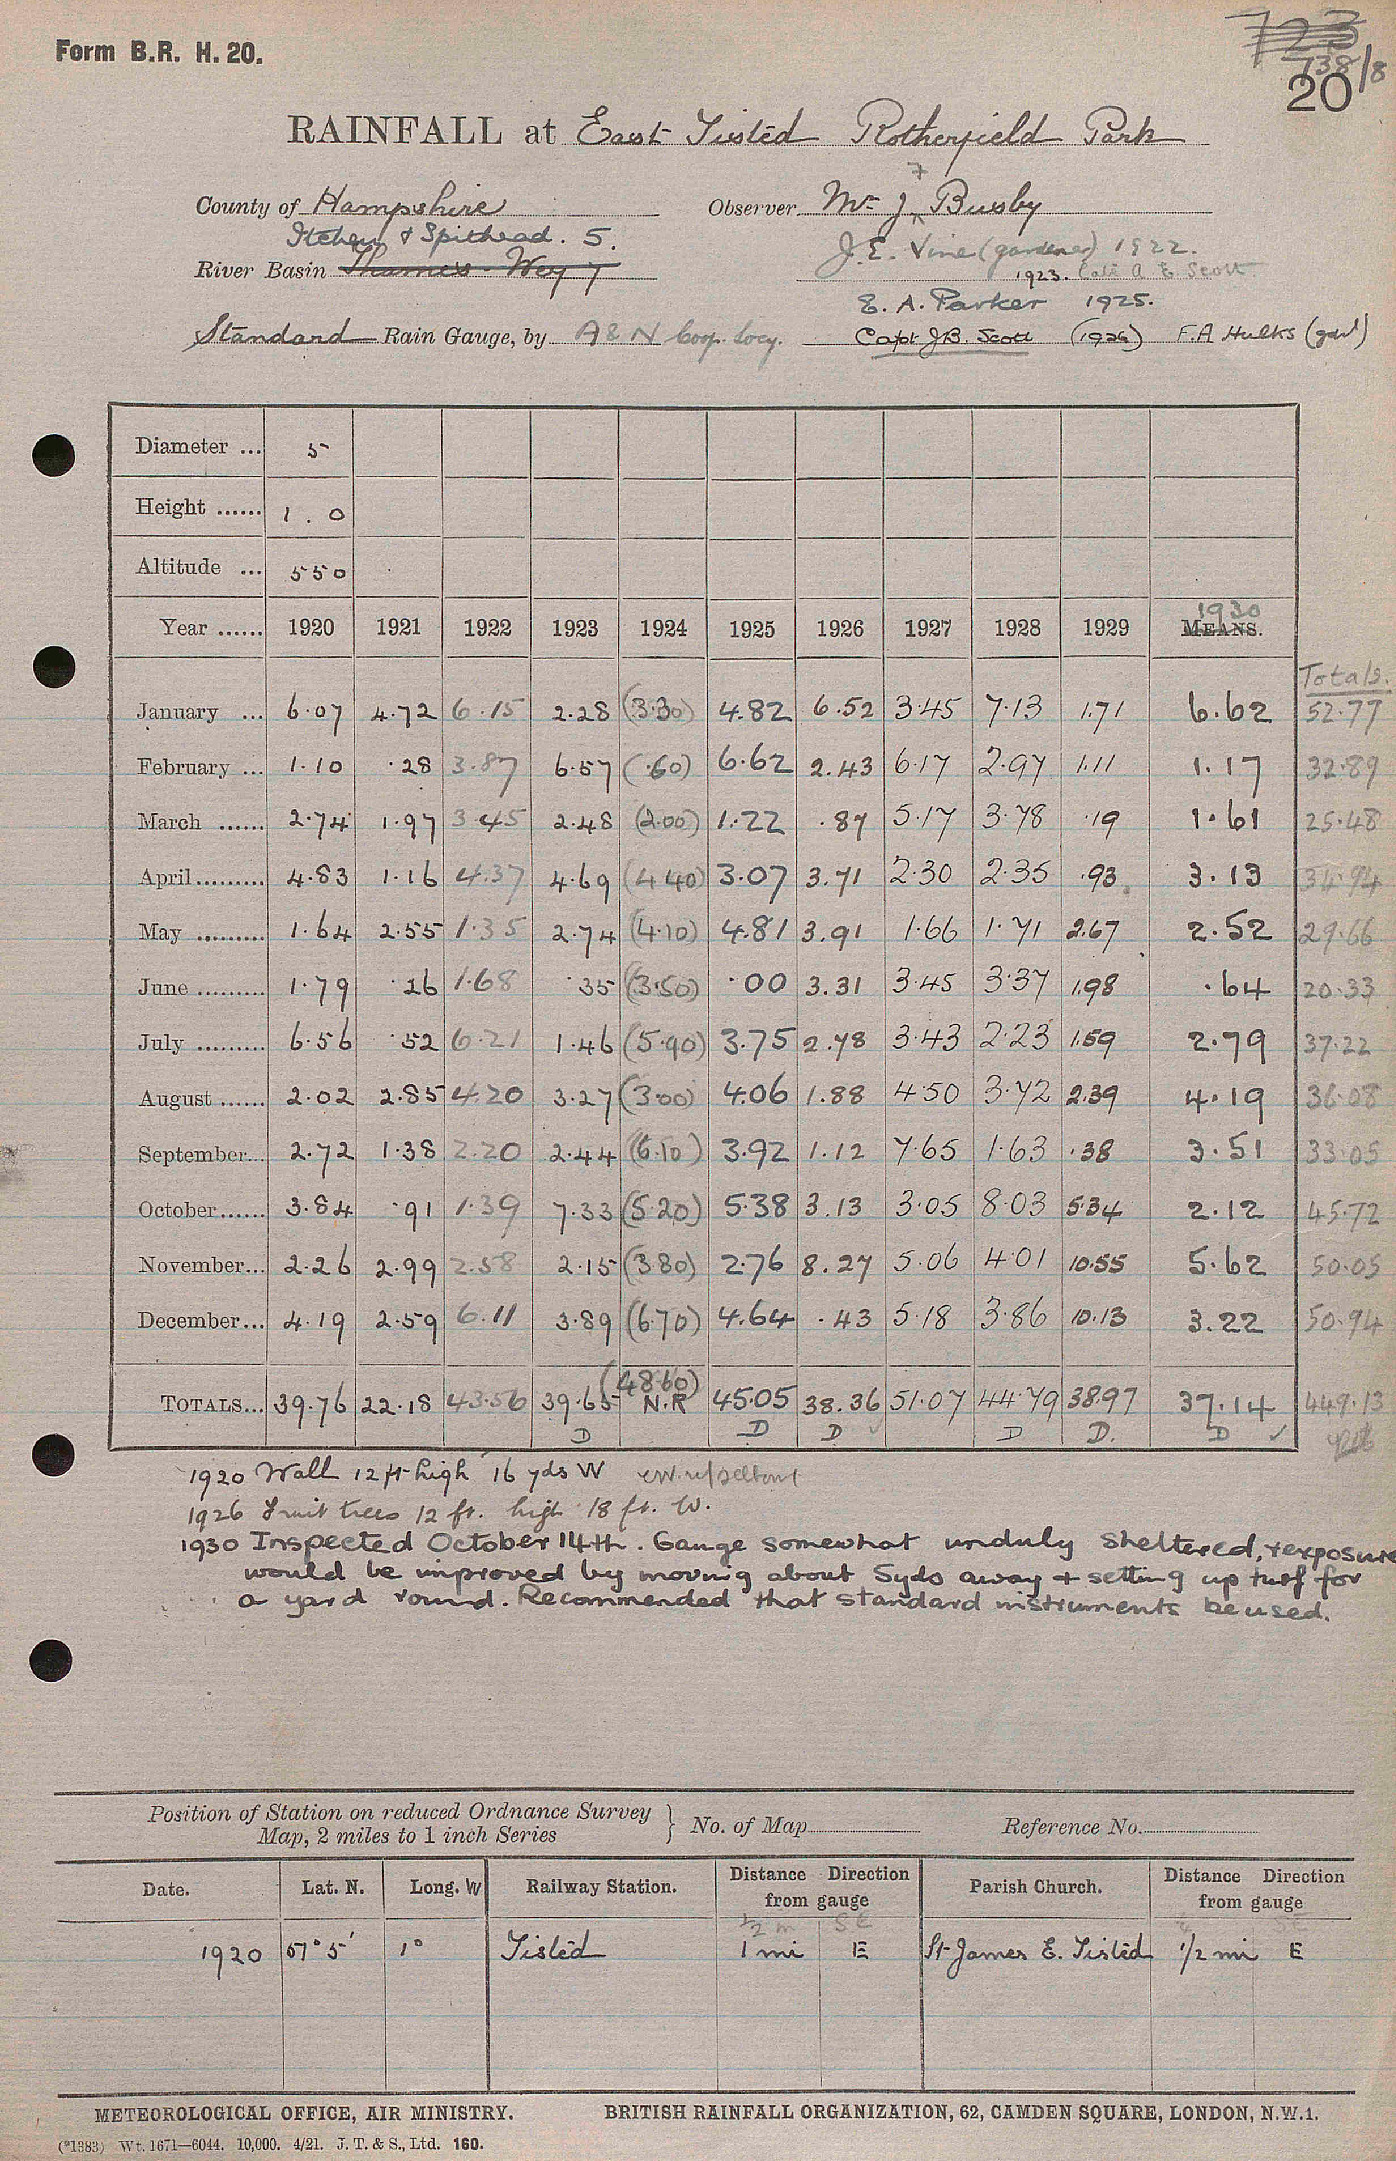 Form B.R. H. 20.
723
738/8
20
RAINFALL at East Tisted Rotherfield Park
County of Hampshire Observer Mr J F Busby
Itchen & Spithead. 5. J.E. Vine (gardener) 1922.
River Basin Thames - Wey 7 1923. A E Scott
E. A. Parker 1925.
Standard Rain Gauge, by A & N Coop. Socy. Capt J.B. Scott (1926) F.A Hulks (gdnr)
Diameter ... 5
Height ...... 1.0
Altitude ... 550
Year ...... 1920 1921 1922 1923 1924 1925 1926 1927 1928 1929 1930 MEANS.
Totals.
January ... 6.07 4.72 6.15 2.28 (3.30) 4.82 6.52 3.45 7.13 1.71 6.62 52.77
February ... 1.10 .28 3.87 6.57 (.60) 6.62 2.43 6.17 2.97 1.11 1.17 32.89
March ...... 2.74 1.97 3.45 2.48 (2.00) 1.22 .87 5.17 3.78 .19 1.61 25.48
April......... 4.83 1.16 4.37 4.69 (4.40) 3.07 3.71 2.30 2.35 .93 3.13 34.94
May ......... 1.64 2.55 1.35 2.74 (4.10) 4.81 3.91 1.66 1.71 2.67 2.52 29.66
June ......... 1.79 .26 1.68 .35 (3.50) .00 3.31 3.45 3.37 1.98 .64 20.33
July ......... 6.56 .52 6.21 1.46 (5.90) 3.75 2.78 3.43 2.23 1.59 2.79 37.22
August ...... 2.02 2.85 4.20 3.27 (3.00) 4.06 1.88 4.50 3.72 2.39 4.19 36.08
September... 2.72 1.38 2.20 2.44 (6.10) 3.92 1.12 7.65 1.63 .38 3.51 33.05
October...... 3.84 .91 1.39 7.33 (5.20) 5.38 3.13 3.05 8.03 5.34 2.12 45.72
November... 2.26 2.99 2.58 2.15 (3.80) 2.76 8.27 5.06 4.01 10.55 5.62 50.05
December... 4.19 2.59 6.11 3.89 (6.70) 4.64 .43 5.18 3.86 10.13 3.22 50.94
(48.60)
TOTALS... 39.76 22.18 43.56 39.65 N.R 45.05 38.36 51.07 44.79 38.97 37.14 449.13
D D D ✓ D D. D ✓
1920 Wall 12 ft high 16 yds W
1926 Fruit trees 12 ft. high 18 ft. W.
1930 Inspected October 14th. Gauge somewhat unduly sheltered, & exposure
would be improved by moving about 5yds away & setting up turf for
a yard round. Recommended that standard instruments be used.
Position of Station on reduced Ordnance Survey
Map, 2 miles to 1 inch Series } No. of Map Reference No.
Date. Lat. N. Long. W Railway Station. Distance Direction from gauge Parish Church. Distance Direction from gauge
1/2 m SE SE
1920 51° 5' 1° Tisted 1 mi E St James E. Tisted 1/2 mi E
METEOROLOGICAL OFFICE, AIR MINISTRY. BRITISH RAINFALL ORGANIZATION, 62, CAMDEN SQUARE, LONDON, N.W.1.
(*1383) Wt. 1671—6044. 10,000. 4/21. J. T. & S., Ltd. 160.